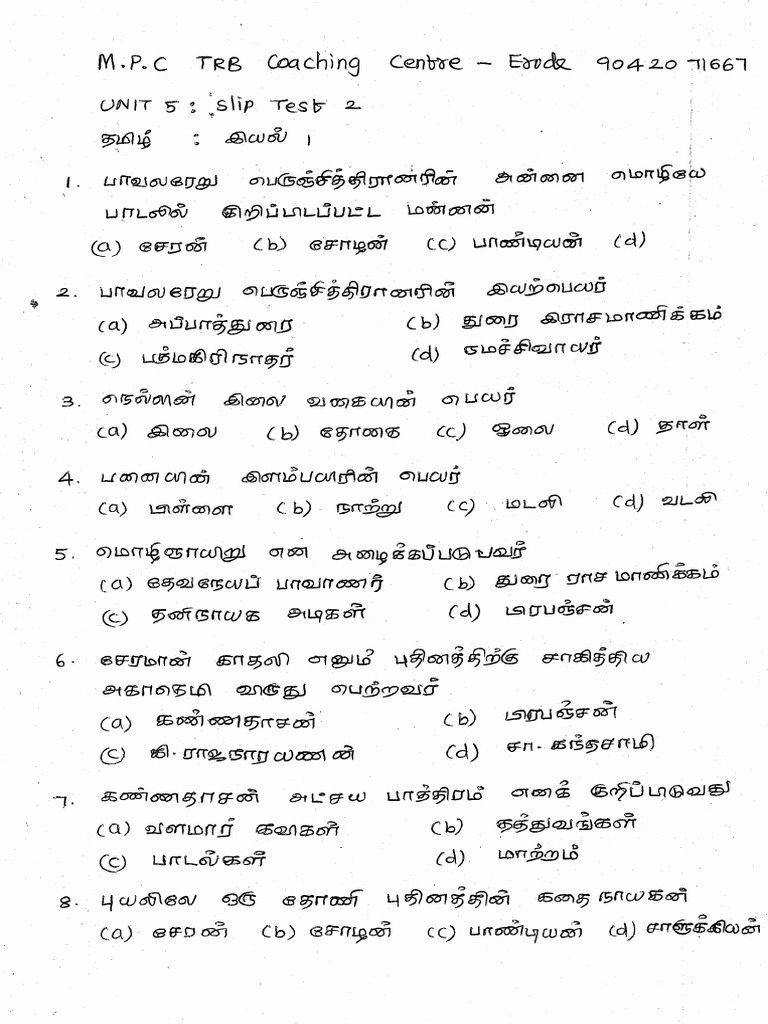 M.P.C TRB Coaching Centre - Erode 90420 71667
UNIT 5 : Slip Test 2
தமிழ் : இயல் 1
1. பாவலரேறு பெருஞ்சித்திரனாரின் அன்னை மொழியே
பாடலில் குறிப்பிடப்பட்ட மன்னன்
(a) சேரன் (b) சோழன் (c) பாண்டியன் (d)
2. பாவலரேறு பெருஞ்சித்திரனாரின் இயற்பெயர்
(a) அப்பாத்துரை (b) துரை இராசமாணிக்கம்
(c) பத்மகிரிநாதர் (d) நமச்சிவாயர்
3. நெல்லின் இலை வகையின் பெயர்
(a) இலை (b) தோகை (c) ஓலை (d) தாள்
4. பனையின் இளம்பயிரின் பெயர்
(a) பிள்ளை (b) நாற்று (c) மடலி (d) வடலி
5. மொழிஞாயிறு என அழைக்கப்படுபவர்
(a) தேவநேயப் பாவாணர் (b) துரை ராசமாணிக்கம்
(c) தனிநாயக அடிகள் (d) பிரபஞ்சன்
6. சேரமான் காதலி எனும் புதினத்திற்கு சாகித்திய
அகாதெமி விருது பெற்றவர்
(a) கண்ணதாசன் (b) பிரபஞ்சன்
(c) கி. ராஜநாரயணன் (d) சா. கந்தசாமி
7. கண்ணதாசன் அட்சய பாத்திரம் எனக் குறிப்பிடுவது
(a) வளமார் கவிகள் (b) தத்துவங்கள்
(c) பாடல்கள் (d) மாற்றம்
8. புயலிலே ஒரு தோணி புதினத்தின் கதை நாயகன்
(a) சேரன் (b) சோழன் (c) பாண்டியன் (d) சாளுக்கியன்